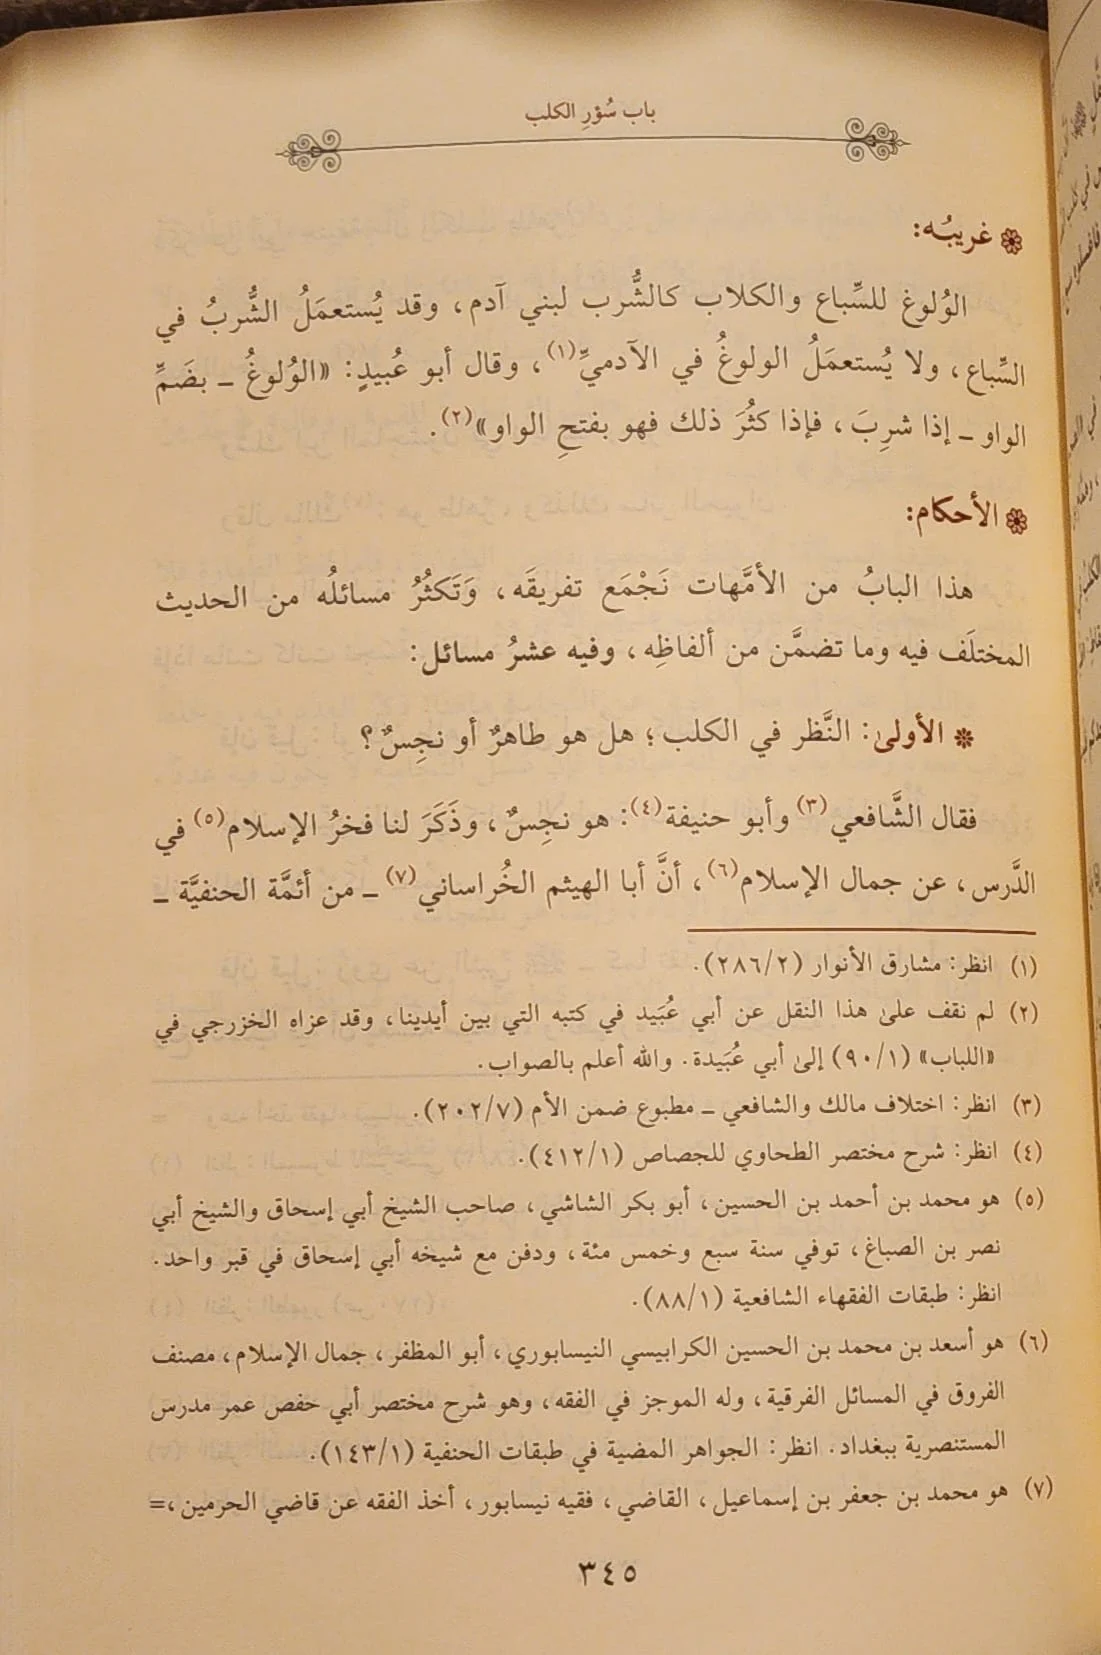 باب سُؤرِ الكلب
غريبُه:
الوُلوغ للسِّباع والكلاب كالشُّرب لبني آدم، وقد يُستعمَلُ الشُّربُ في
السِّباع، ولا يُستعمَلُ الولوغُ في الآدميِّ(١)، وقال أبو عُبيدٍ: «الوُلوغُ ـ بضَمِّ
الواو ـ إذا شرِبَ، فإذا كثُرَ ذلك فهو بفتحِ الواو»(٢).
الأحكام:
هذا البابُ من الأمَّهات نَجْمَع تفريقَه، وَتَكثُرُ مسائلُه من الحديث
المختلَف فيه وما تضمَّن من ألفاظِه، وفيه عشرُ مسائل:
الأولىٰ: النَّظر في الكلب؛ هل هو طاهرٌ أو نجِسٌ؟
فقال الشَّافعي(٣) وأبو حنيفة(٤): هو نجِسٌ، وذَكَرَ لنا فخرُ الإسلام(٥) في
الدَّرس، عن جمال الإسلام(٦)، أنَّ أبا الهيثم الخُراساني(٧) ـ من أئمَّة الحنفيَّة ـ
(١) انظر: مشارق الأنوار (٢/٢٨٦).
(٢) لم نقف علىٰ هذا النقل عن أبي عُبَيد في كتبه التي بين أيدينا، وقد عزاه الخزرجي في
«اللباب» (١/٩٠) إلىٰ أبي عُبَيدة. والله أعلم بالصواب.
(٣) انظر: اختلاف مالك والشافعي ـ مطبوع ضمن الأم (٧/٢٠٢).
(٤) انظر: شرح مختصر الطحاوي للجصاص (١/٤١٢).
(٥) هو محمد بن أحمد بن الحسين، أبو بكر الشاشي، صاحب الشيخ أبي إسحاق والشيخ أبي
نصر بن الصباغ، توفي سنة سبع وخمس مئة، ودفن مع شيخه أبي إسحاق في قبر واحد.
انظر: طبقات الفقهاء الشافعية (١/٨٨).
(٦) هو أسعد بن محمد بن الحسين الكرابيسي النيسابوري، أبو المظفر، جمال الإسلام، مصنف
الفروق في المسائل الفرقية، وله الموجز في الفقه، وهو شرح مختصر أبي حفص عمر مدرس
المستنصرية ببغداد. انظر: الجواهر المضية في طبقات الحنفية (١/١٤٣).
(٧) هو محمد بن جعفر بن إسماعيل، القاضي، فقيه نيسابور، أخذ الفقه عن قاضي الحرمين،=
٣٤٥